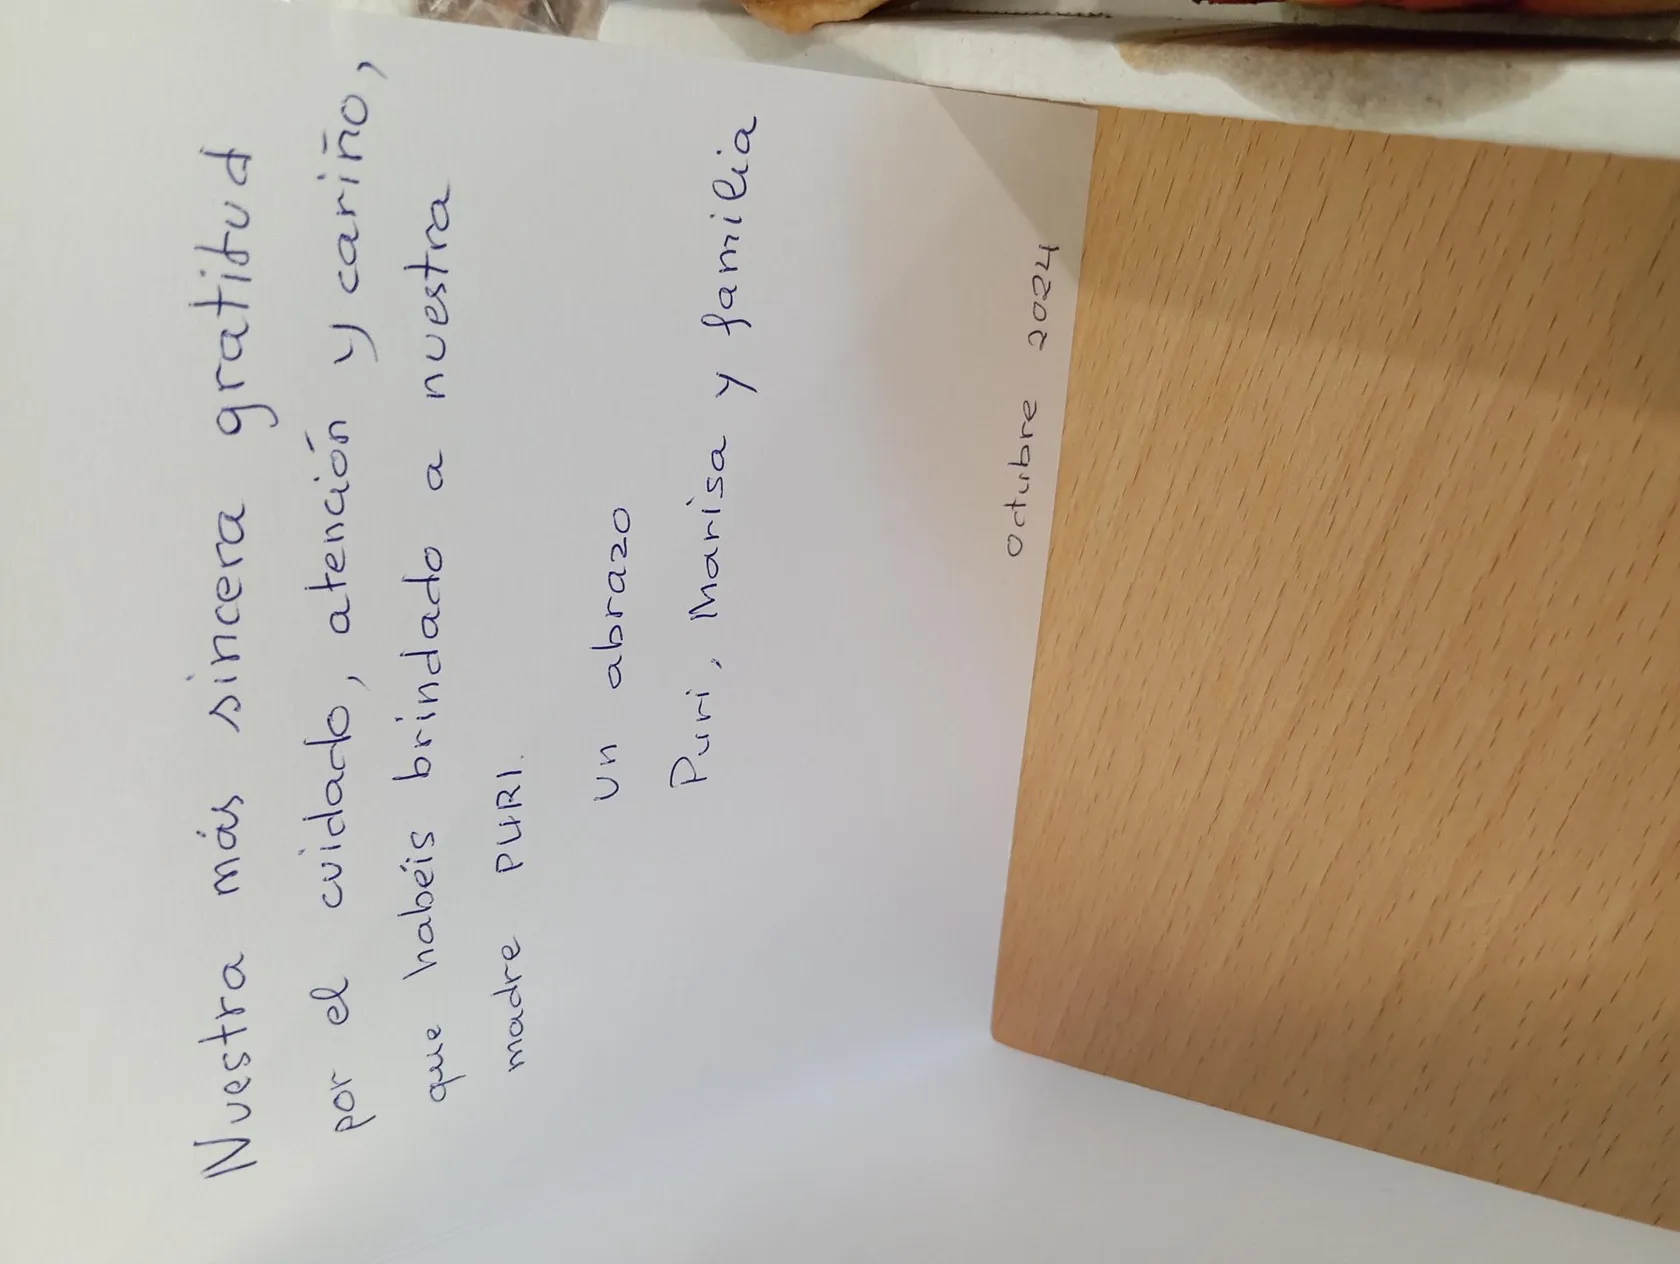 Nuestra más sincera gratitud
por el cuidado, atención y cariño,
que habéis brindado a nuestra
madre PURI.
un abrazo
Puri, Marisa y familia
octubre 2024